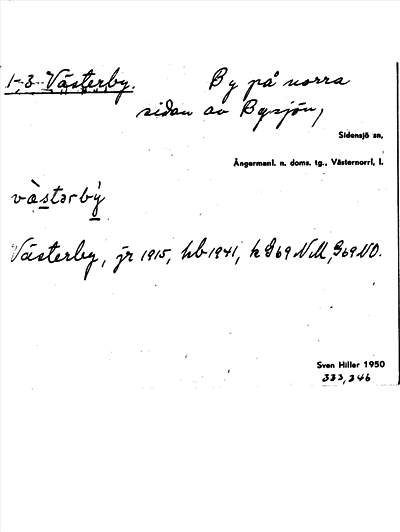 1-3 Västerby. By på norra
sidan av Bysjön,
Sidensjö sn,
Ångermanl. n. doms. tg., Västernorrl, l.
vàstərbý
Västerby, jr 1915, hb 1941, k 869 NM, 869 NO.
Sven Hiller 1950
333, 346